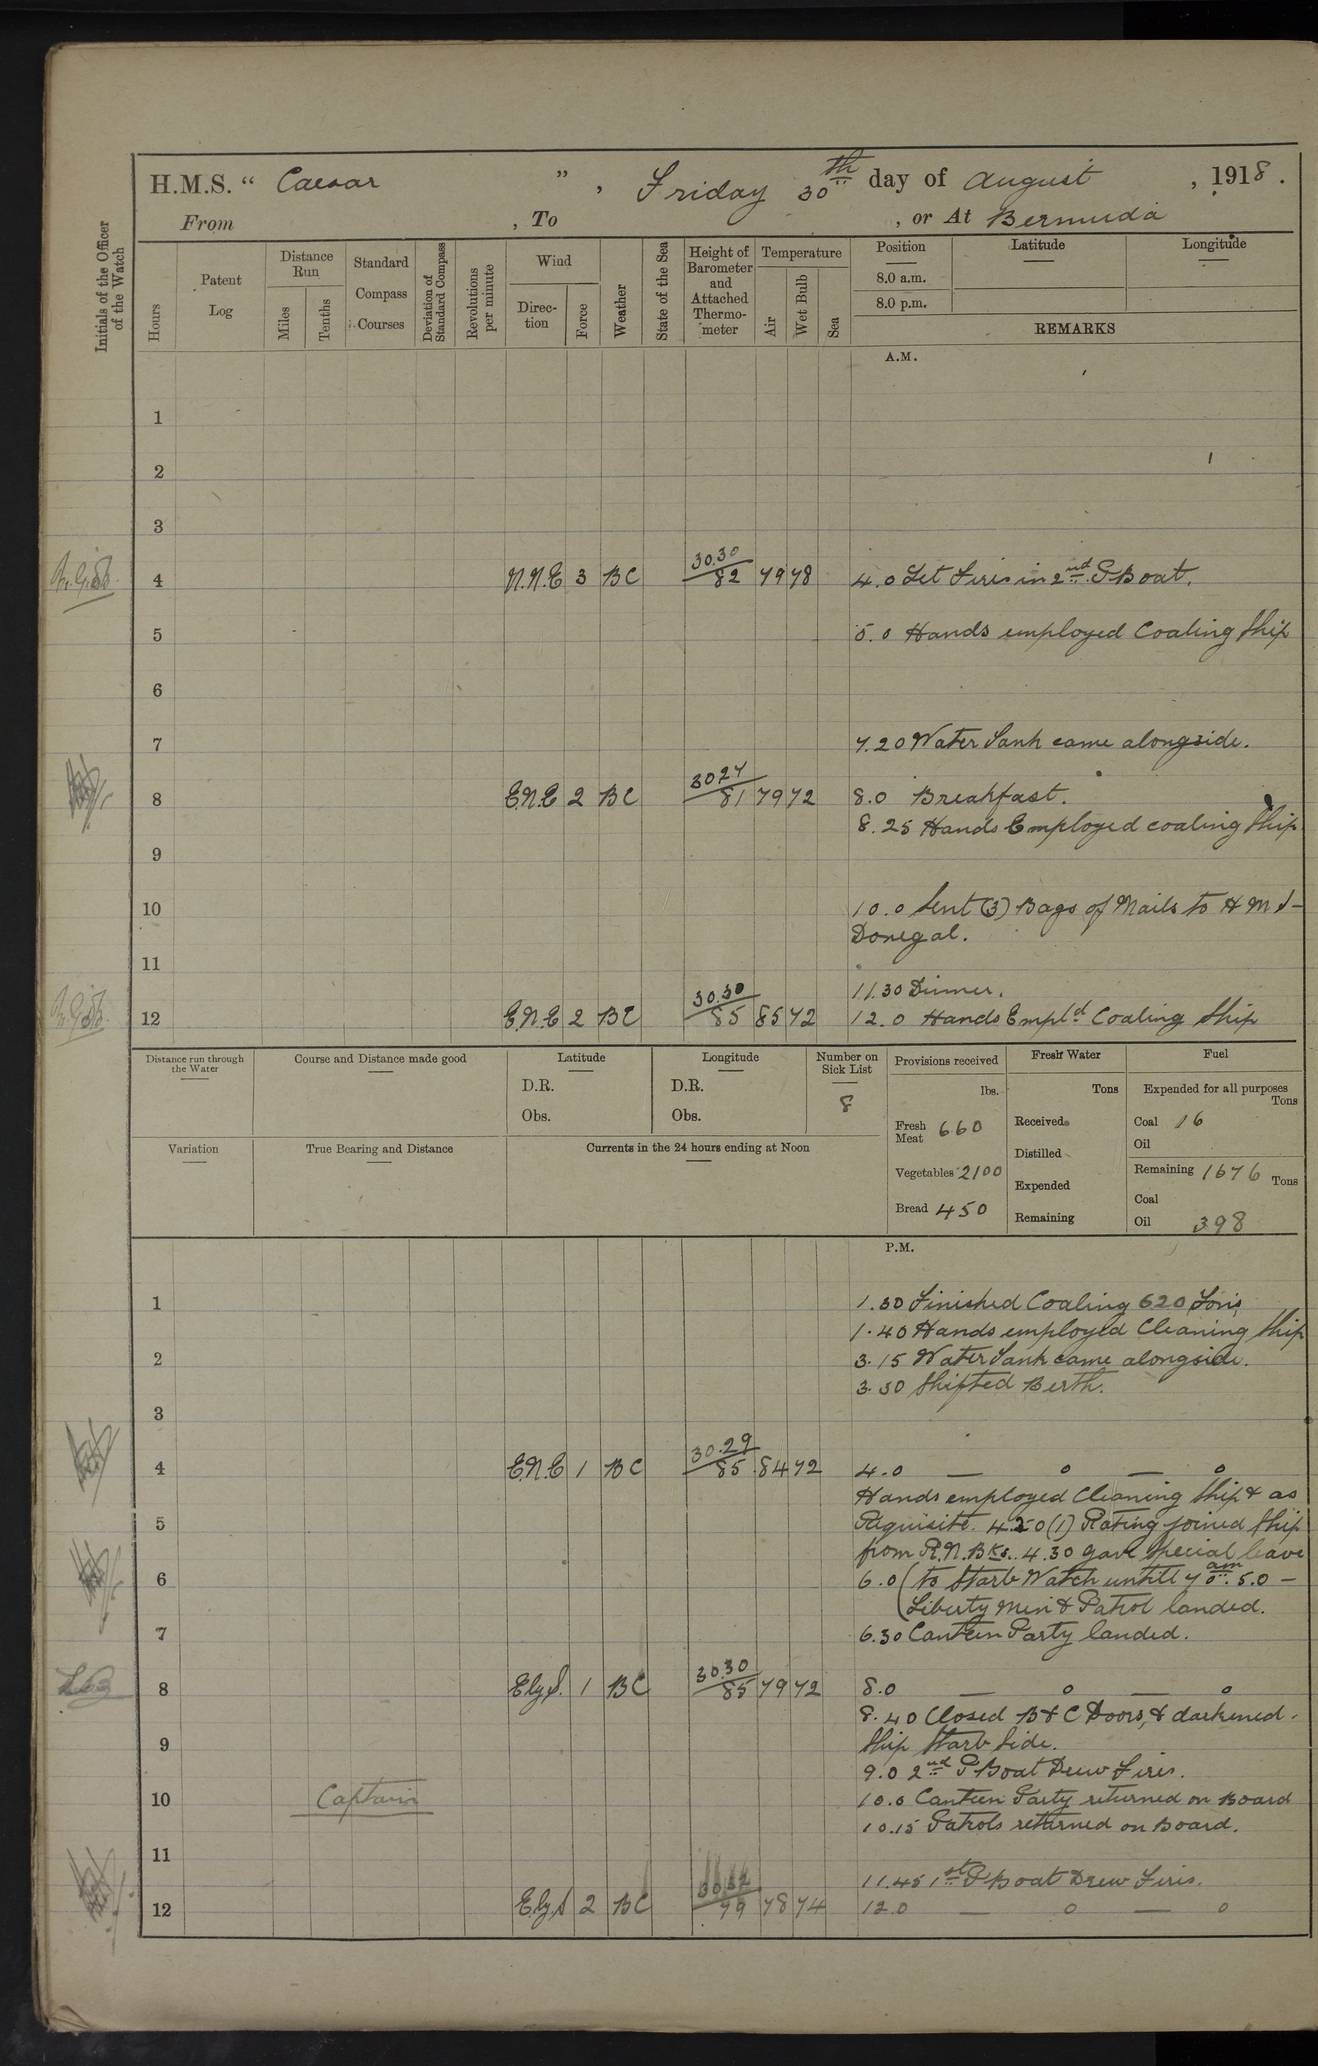 H.M.S. “ Caesar ” , Friday 30th day of August , 1918 .
From , To , or At Bermuda
Initials of the Officer of the Watch
Hours
Patent Log
Distance Run
Miles
Tenths
Standard Compass Courses
Deviation of Standard Compass
Revolutions per minute
Wind
Direction
Force
Weather
State of the Sea
Height of Barometer and Attached Thermometer
Temperature
Air
Wet Bulb
Sea
Position Latitude Longitude
8.0 a.m.
8.0 p.m.
REMARKS
A.M.
1
2
3
4 N.N.E 3 BC 30.30/82 79 78 4.0 Let Fires in 2nd P Boat.
5 5.0 Hands employed Coaling Ship
6
7 7.20 Water Tank came alongside.
8 E.N.E 2 BC 30 27/81 79 72 8.0 Breakfast.
8.25 Hands Employed coaling Ship
9
10 10.0 Sent (3) Bags of Mails to H M S-
Donegal.
11
11.30 Dinner.
12 E.N.E 2 BC 30.30/85 85 72 12.0 Hands Empld Coaling Ship
Distance run through the Water
Course and Distance made good
Latitude
D.R.
Obs.
Longitude
D.R.
Obs.
Number on Sick List
8
Variation
True Bearing and Distance
Currents in the 24 hours ending at Noon
Provisions received
lbs.
Fresh Meat 660
Vegetables 2100
Bread 450
Fresh Water
Tons
Received
Distilled
Expended
Remaining
Fuel
Expended for all purposes
Tons
Coal 16
Oil
Remaining 1676 Tons
Coal
Oil 398
P.M.
1 1.30 Finished Coaling 620 Tons
1.40 Hands employed Cleaning Ship
2 3.15 Water Tank came alongside.
3.30 Shifted Berth.
3
4 E.N.E 1 BC 30.29/85 84 72 4.0 — o — o
Hands employed Cleaning Ship & as
5 Requisite. 4.20 (1) Rating joined Ship
from R.N. Bks. 4.30 gave special leave
6 6.0 (to Starb Watch untill 7.0 am. 5.0 —
Liberty men & Patrol landed.
7 6.30 Canteen Party landed.
8 Ely S. 1 BC 30.30/85 79 72 8.0 — o — o
8.40 Closed B & C Doors, & darkened
9 Ship Starb Side.
9.0 2nd P Boat Drew Fires.
10 Captain 10.0 Canteen Party returned on Board
10.15 Patrols returned on Board.
11
11.45 1st P Boat Drew Fires.
12 Ely S 2 BC 79 78 74 12.0 — o — o